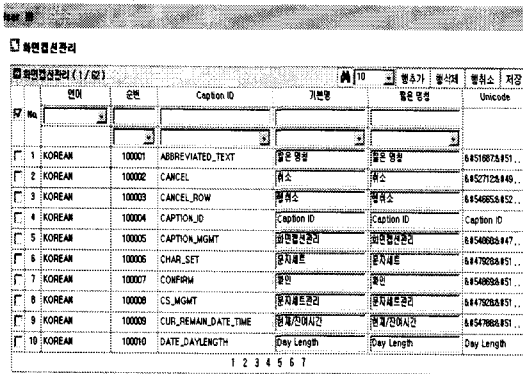 화면캡션관리
화면캡션관리 ( 1 / 62 ) 10 행추가 행삭제 행취소 저장
No. 언어 순번 Caption ID 기본명 짧은 명칭 Unicode
1 KOREAN 100001 ABBREVIATED_TEXT 짧은 명칭 짧은 명칭 &#51687;&#51...
2 KOREAN 100002 CANCEL 취소 취소 &#52712;&#49...
3 KOREAN 100003 CANCEL_ROW 행취소 행취소 &#54665;&#52...
4 KOREAN 100004 CAPTION_ID Caption ID Caption ID Caption ID
5 KOREAN 100005 CAPTION_MGMT 화면캡션관리 화면캡션관리 &#54868;&#47...
6 KOREAN 100006 CHAR_SET 문자세트 문자세트 &#47928;&#51...
7 KOREAN 100007 CONFIRM 확인 확인 &#54869;&#51...
8 KOREAN 100008 CS_MGMT 문자세트관리 문자세트관리 &#47928;&#51...
9 KOREAN 100009 CUR_REMAIN_DATE_TIME 현재/잔여시간 현재/잔여시간 &#54788;&#51...
10 KOREAN 100010 DATE_DAYLENGTH Day Length Day Length Day Length
1 2 3 4 5 6 7